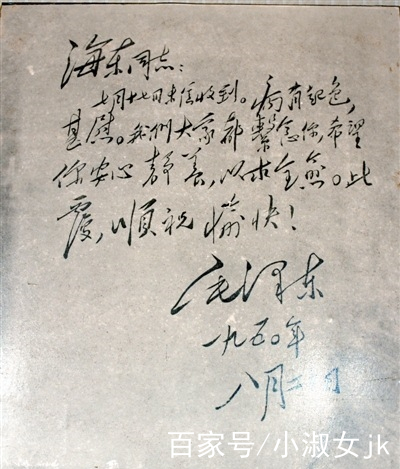 海东同志：
七月十七日来信收到。病有起色，
甚慰。我们大家都繫念你，希望
你安心静养，以求全愈。此
覆，顺祝 愉快！
毛泽东
一九五〇年
八月二日
百家号/小淑女jk